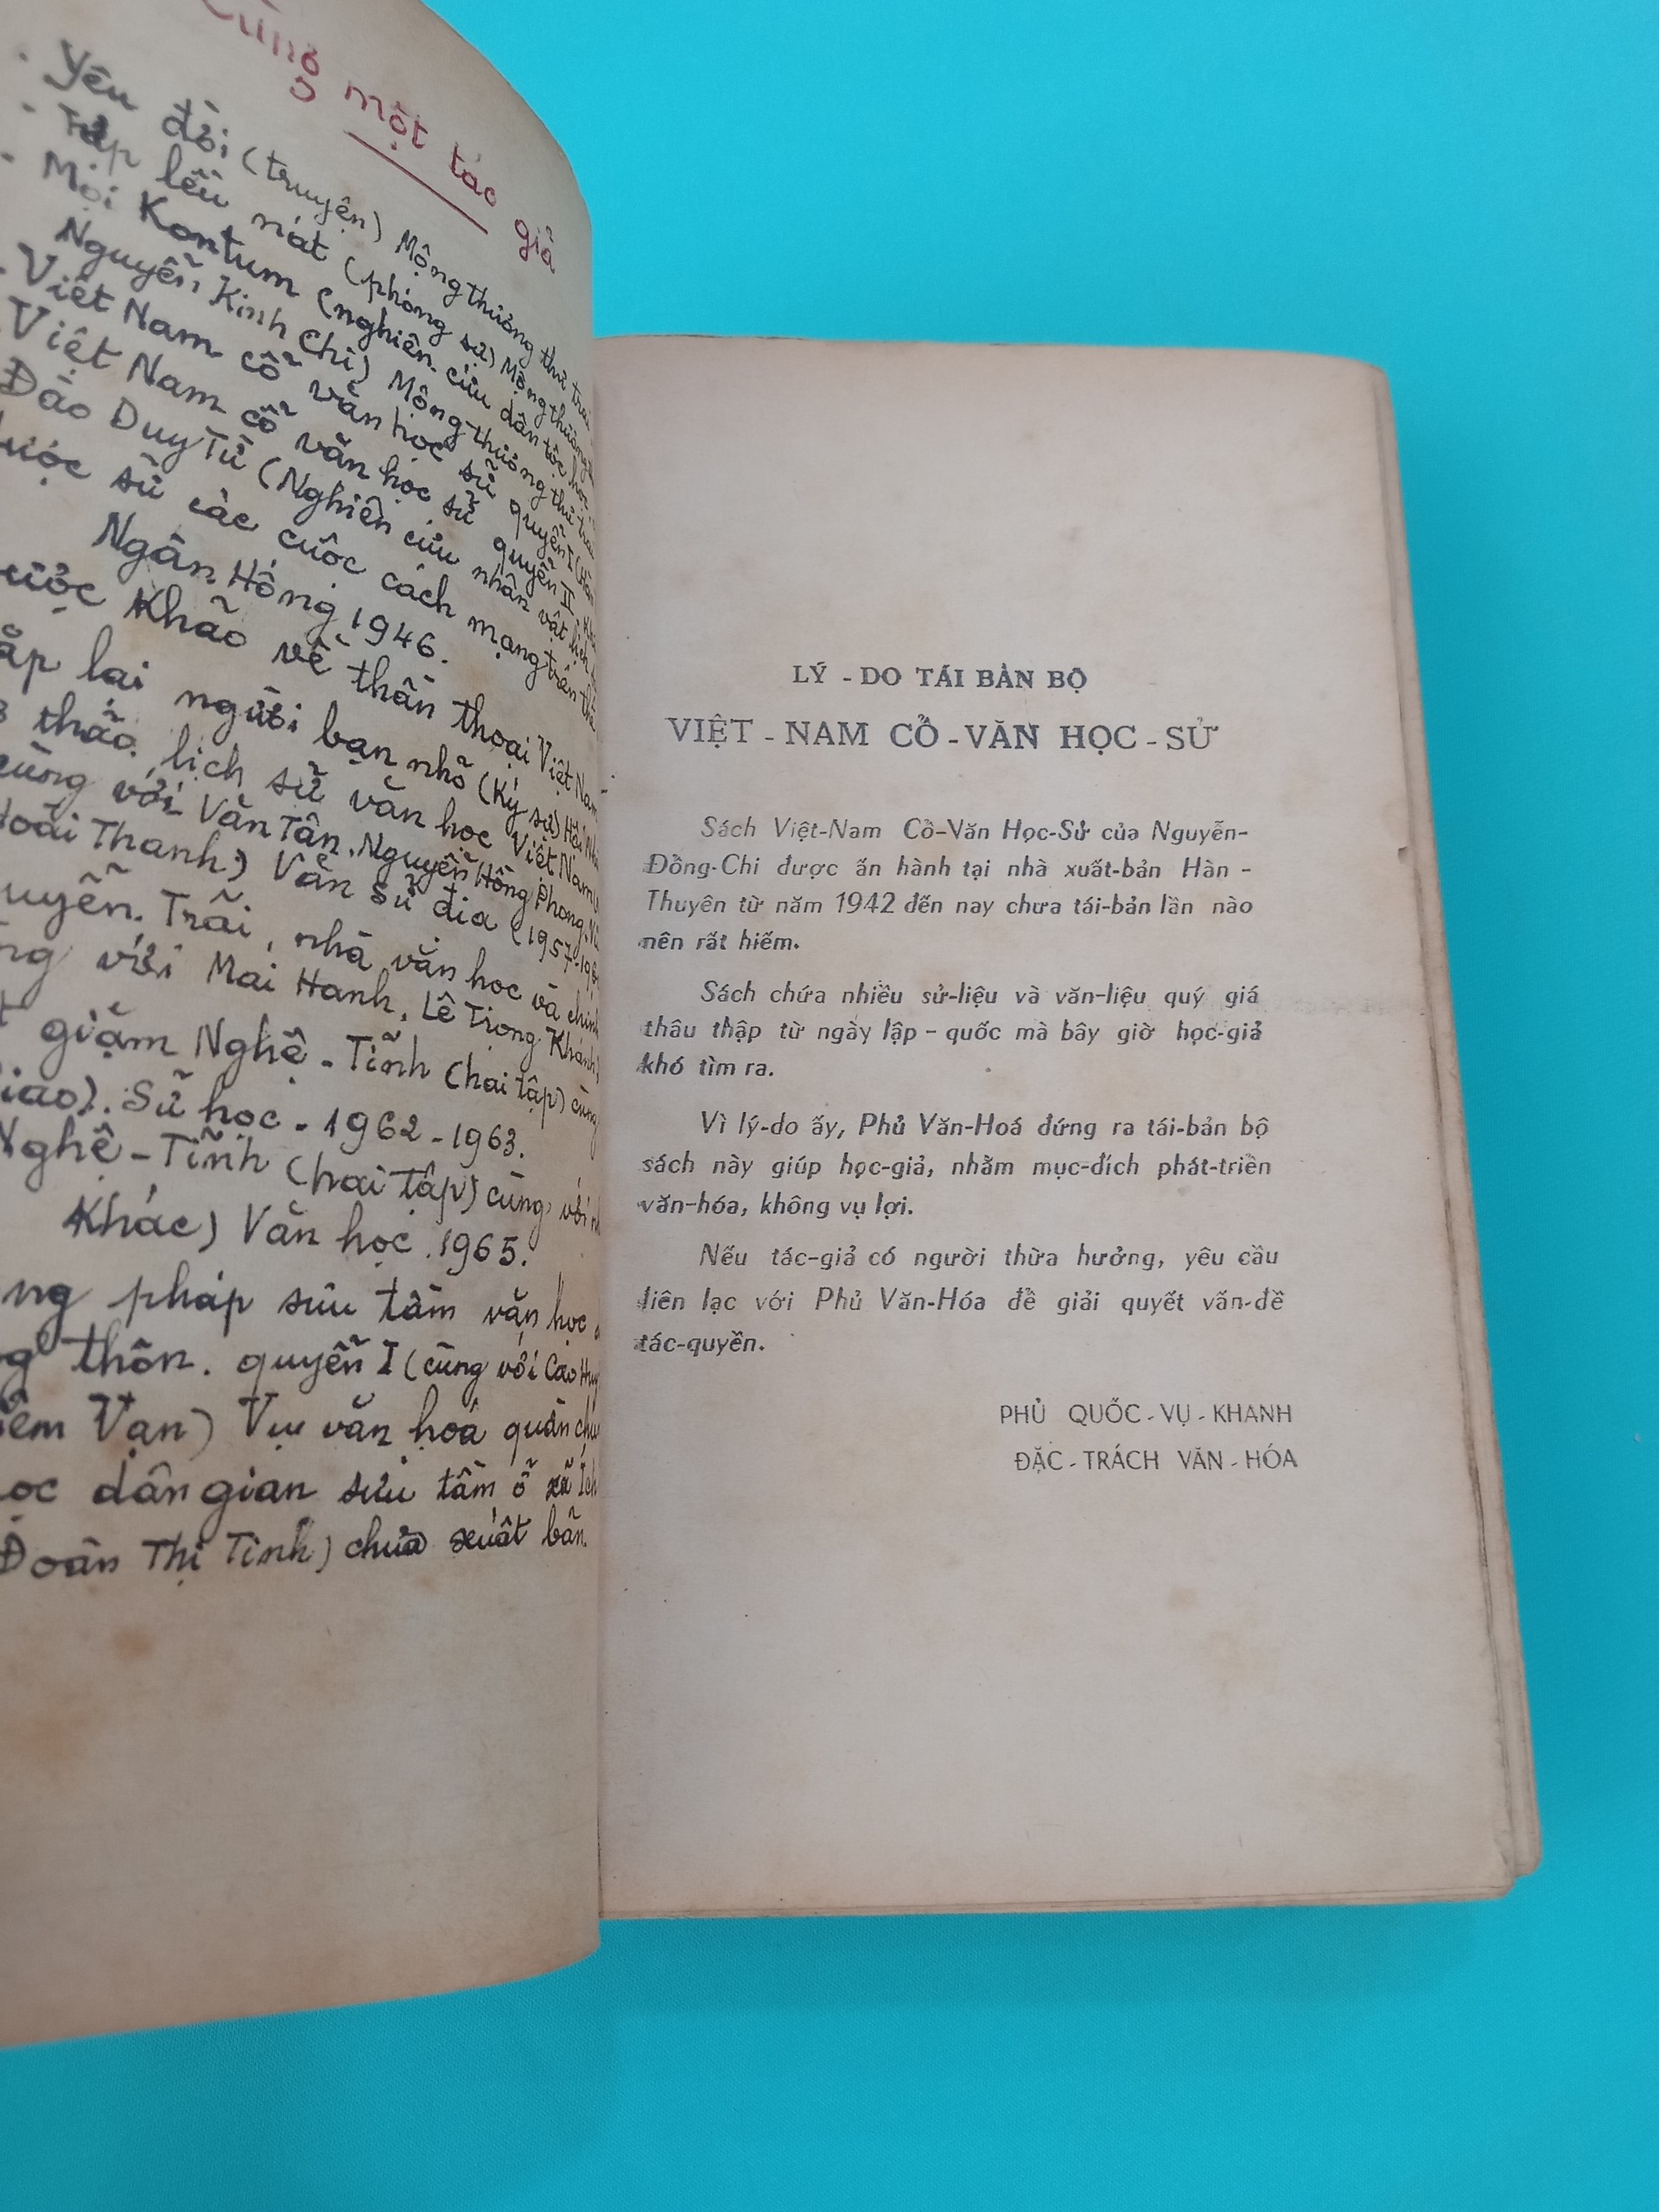 Cùng một tác giả
- Yêu đời (truyện) Mộng thương thư trai
- Túp lều nát (phóng sự) Mộng thương
- Mọi Kontum (nghiên cứu dân tộc học
Nguyễn Kinh Chi) Mộng thương thư trai
- Việt Nam cổ văn học sử quyển I (Hàn
- Việt Nam cổ văn học sử quyển II
Đào Duy Từ (Nghiên cứu nhân vật lịch
sử các cuộc cách mạng trên thế
Ngàn Hống 1946.
Khảo về thần thoại Việt Nam
lại người bạn nhỏ (Ký sự)
thảo lịch sử văn học Việt Nam
cùng với Văn Tân, Nguyễn Hồng Phong,
Hoài Thanh) Văn sử địa (1957-
Trãi, nhà văn học và chính
với Mai Hanh, Lê Trọng Khánh)
giặm Nghệ-Tĩnh (hai tập) cùng
Sử học - 1962-1963.
Nghệ-Tĩnh (hai tập) cùng với
Khác) Văn học. 1965.
pháp sưu tầm văn học
thôn. quyển I (cùng với Cao Huy
Vạn) Vụ văn hoá quần chúng
dân gian sưu tầm ở xã Ích
Đoàn Thị Tình) chưa xuất bản.
LÝ - DO TÁI BẢN BỘ
VIỆT - NAM CỔ - VĂN HỌC - SỬ
Sách Việt-Nam Cổ-Văn Học-Sử của Nguyễn-
Đồng-Chi được ấn hành tại nhà xuất-bản Hàn -
Thuyên từ năm 1942 đến nay chưa tái-bản lần nào
nên rất hiếm.
Sách chứa nhiều sử-liệu và văn-liệu quý giá
thâu thập từ ngày lập - quốc mà bây giờ học-giả
khó tìm ra.
Vì lý-do ấy, Phủ Văn-Hoá đứng ra tái-bản bộ
sách này giúp học-giả, nhằm mục-đích phát-triển
văn-hóa, không vụ lợi.
Nếu tác-giả có người thừa hưởng, yêu cầu
liên lạc với Phủ Văn-Hóa để giải quyết vấn-đề
tác-quyền.
PHỦ QUỐC - VỤ - KHANH
ĐẶC - TRÁCH VĂN - HÓA